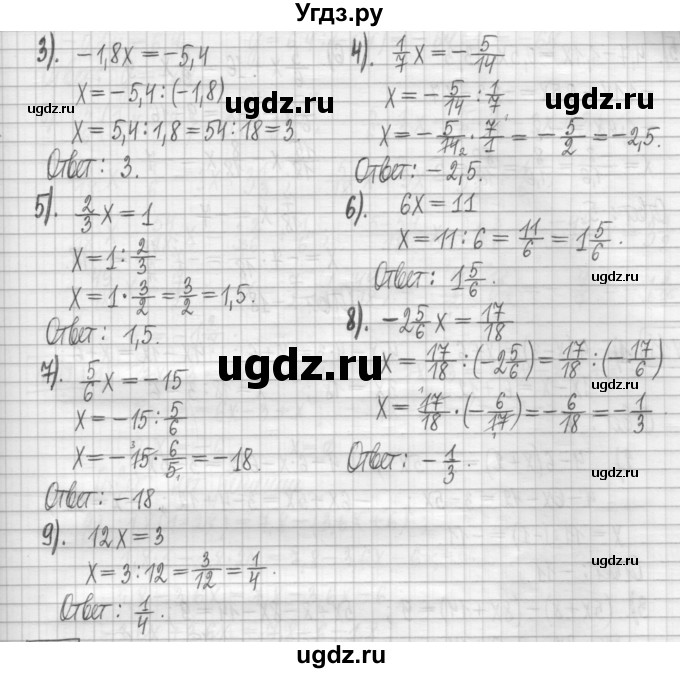 Угдз.ру
3). -1,8x = -5,4
x = -5,4 : (-1,8)
x = 5,4 : 1,8 = 54 : 18 = 3.
Ответ: 3.
4). 1/7 x = - 5/14
x = - 5/14 : 1/7
x = - 5/14 2 · 7/1 = - 5/2 = -2,5.
Ответ: -2,5.
5). 2/3 x = 1
x = 1 : 2/3
x = 1 · 3/2 = 3/2 = 1,5.
Ответ: 1,5.
6). 6x = 11
x = 11 : 6 = 11/6 = 1 5/6.
Ответ: 1 5/6.
7). 5/6 x = -15
x = -15 : 5/6
x = - 3 15 · 6/5 1 = -18.
Ответ: -18.
8). -2 5/6 x = 17/18
x = 17/18 : (-2 5/6) = 17/18 : (- 17/6)
x = 17/18 · (- 6/17) = - 6/18 = - 1/3
Ответ: - 1/3.
9). 12x = 3
x = 3 : 12 = 3/12 = 1/4.
Ответ: 1/4.
ugdz.ru
ugdz.ru
ugdz.ru
ugdz.ru
ugdz.ru
ugdz.ru
ugdz.ru
ugdz.ru
ugdz.ru
ugdz.ru
ugdz.ru